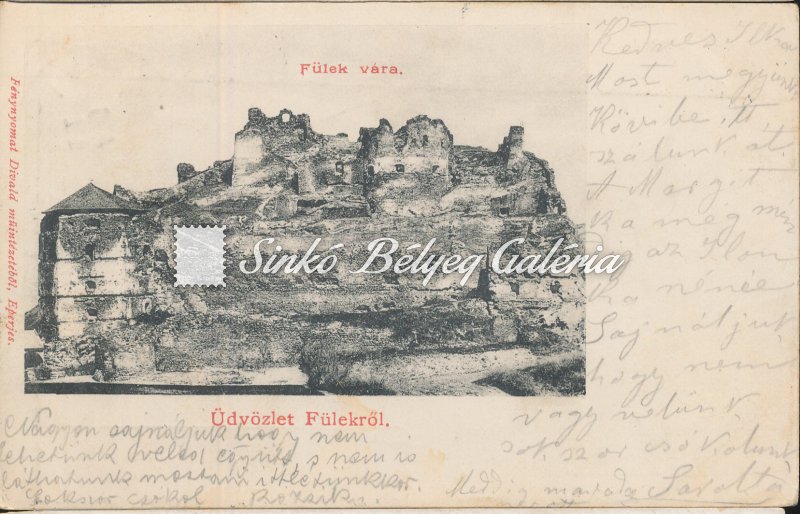 Fülek vára.
Fénynyomat Divald műintézetéből, Eperjes.
Sinkó Bélyeg Galéria
Üdvözlet Fülekről.
Kedves Ilka
Most megyünk
itt
szálunk át.
A Margit
ka még
az Ilon
ka nénée
Sajnáljuk
hogy nem
vagy velünk.
sokszor csókolunk
Meddig Sarolta
Nagyon sajnáljuk hogy nem
lehetünk veled együtt, s nem is
láthatunk mostani ittlétünkkor.
Sokszor csókol Rozsika.